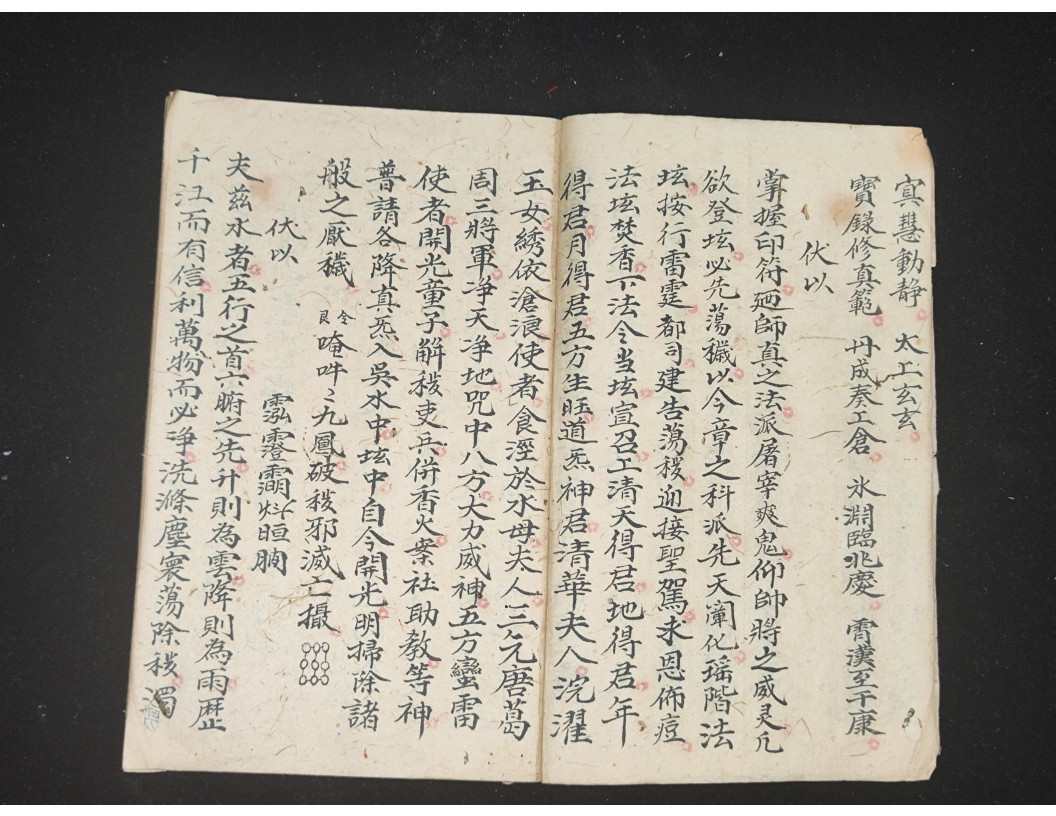 寘慧動静　太工玄玄
寶錄修真範　丹成奏工倉　氷淵臨兆慶　霄漢至干康
伏以
掌握印符廼師真之法派屠宰爽鬼仰帥將之威灵凢
欲登坛必先蕩穢以今章之科派先天闡化瑶階法
坛按行雷霆都司建告蕩秽迎接聖駕求恩佈痘
法坛焚香下法今当坛宣召工清天得君地得君年
得君月得君五方生旺道炁神君清華夫人浣濯
玉女綉依滄浪使者食淫於水母夫人三元唐葛
周三將軍净天净地咒中八方大力威神五方蠻雷
使者開光童子解秽吏兵併香火案社助教等神
普請各降真炁入吳水中坛中自今開光明掃除諸
般之厭穢　令艮　唵吽〻九鳳破秽邪滅亡攝
伏以　　霐霪霌炓晅腩
夫茲水者五行之首六腑之先升則為雲降則為雨歷
千江而有信利萬物而必净洗滌塵寰蕩除秽濁